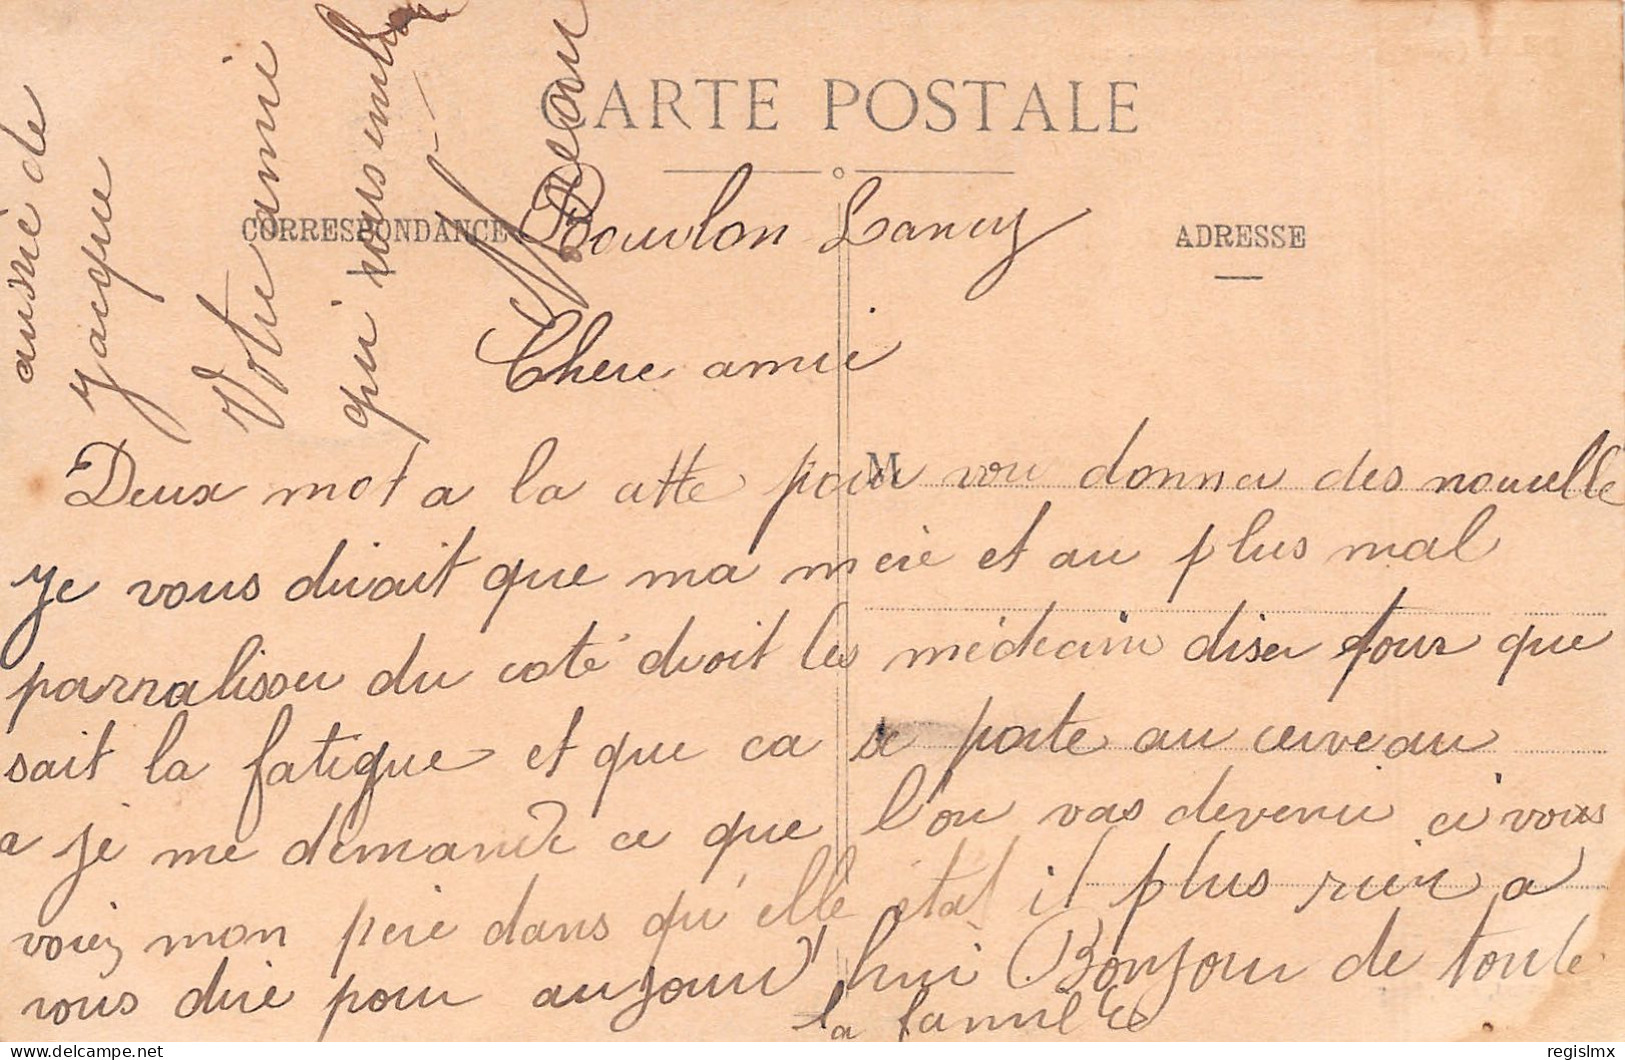 CARTE POSTALE
CORRESPONDANCE
ADRESSE
M
Bourbon Lancy
Chere amie
Deux mot a la atte pour vou donner des nouvelle
Je vous dirait que ma mère et au plus mal
parralisser du coté droit les médecin diser tous que
sait la fatigue et que ca se porte au cerveau
a je me demande ce que l'on vas devenir ci vous
voiez mon père dans qu'elle état il plus rien a
vous dire pour aujourd'hui Bonjour de toute
la famille
ausie de
Jacque
Votre amie
qui vous
delmx